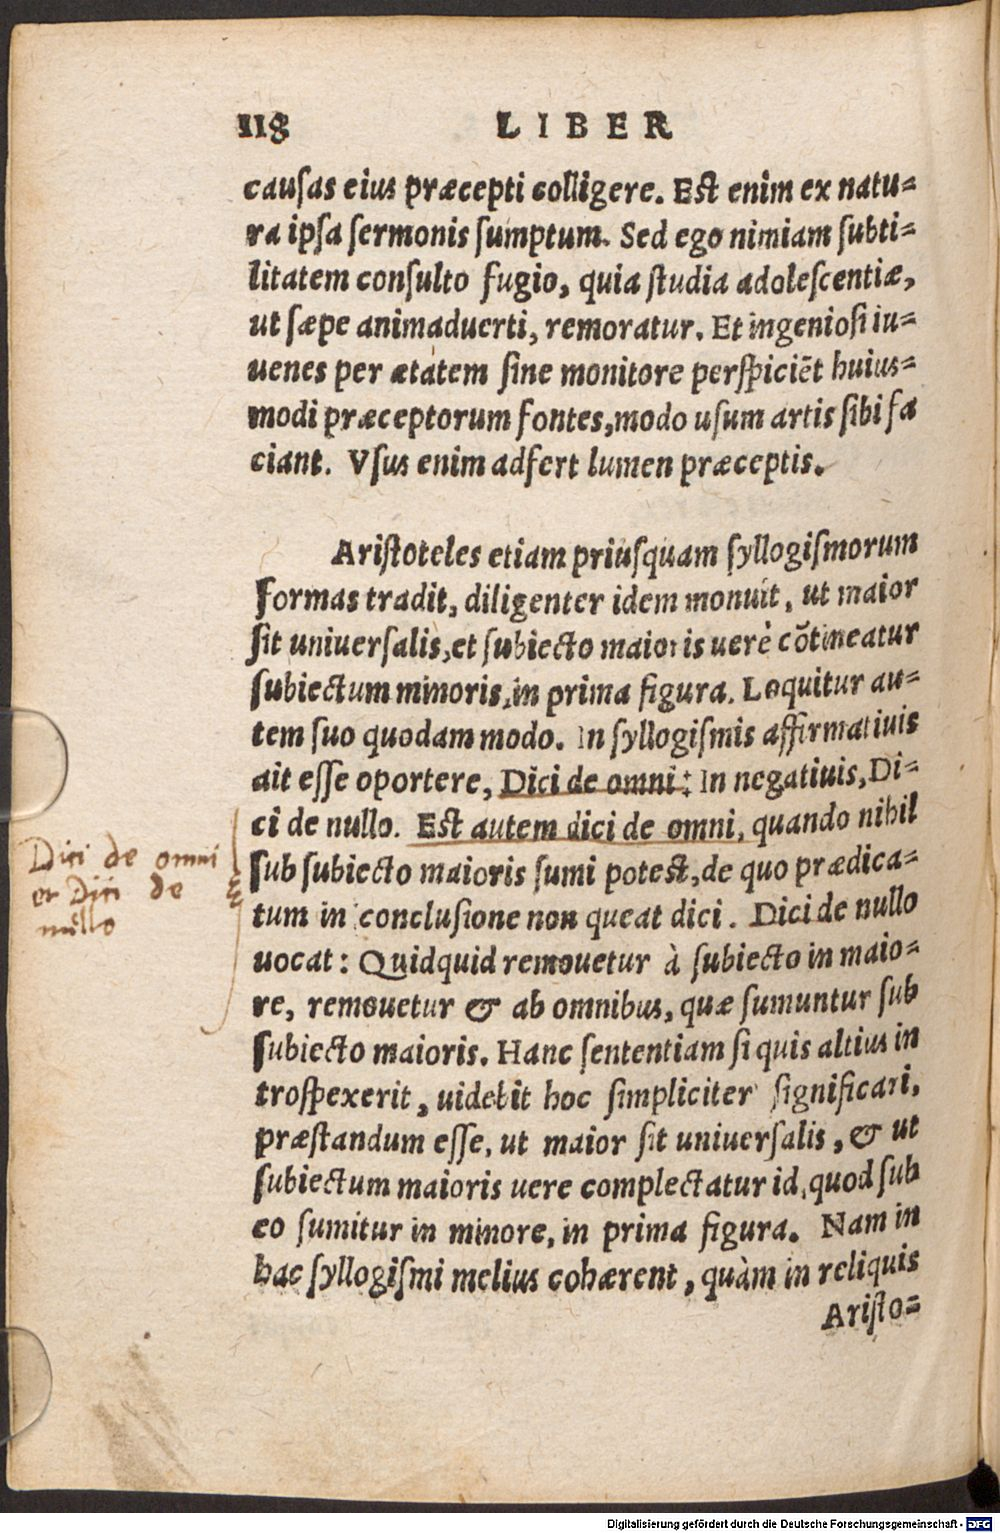 118 LIBER
cauſas eius præcepti colligere. Eſt enim ex natu⸗
ra ipſa ſermonis ſumptum. Sed ego nimiam ſubti⸗
litatem conſulto fugio, quia ſtudia adoleſcentiæ,
ut ſæpe animaduerti, remoratur. Et ingenioſi iu⸗
uenes per ætatem ſine monitore perſpiciẽt huius⸗
modi præceptorum fontes, modo uſum artis ſibi fa
ciant. Vſus enim adfert lumen præceptis.
Ariſtoteles etiam priuſquam ſyllogiſmorum
formas tradit, diligenter idem monuit, ut maior
ſit uniuerſalis, et ſubiecto maioris uerè cõtineatur
ſubiectum minoris, in prima figura. Loquitur au⸗
tem ſuo quodam modo. In ſyllogiſmis affirmatiuis
ait eſſe oportere, Dici de omni: In negatiuis, Di⸗
ci de nullo. Eſt autem dici de omni, quando nihil
ſub ſubiecto maioris ſumi poteſt, de quo prædica⸗
tum in concluſione non queat dici. Dici de nullo
uocat: Quidquid remouetur à ſubiecto in maio⸗
re, remouetur & ab omnibus, quæ ſumuntur ſub
ſubiecto maioris. Hanc ſententiam ſi quis altius in
troſpexerit, uidebit hoc ſimpliciter ſignificari,
præſtandum eſſe, ut maior ſit uniuerſalis, & ut
ſubiectum maioris uere complectatur id, quod ſub
eo ſumitur in minore, in prima figura. Nam in
hac ſyllogiſmi melius cohærent, quàm in reliquis
Ariſto⸗
Dici de omni
et Dici de
nullo
Digitalisierung gefördert durch die Deutsche Forschungsgemeinschaft - DFG